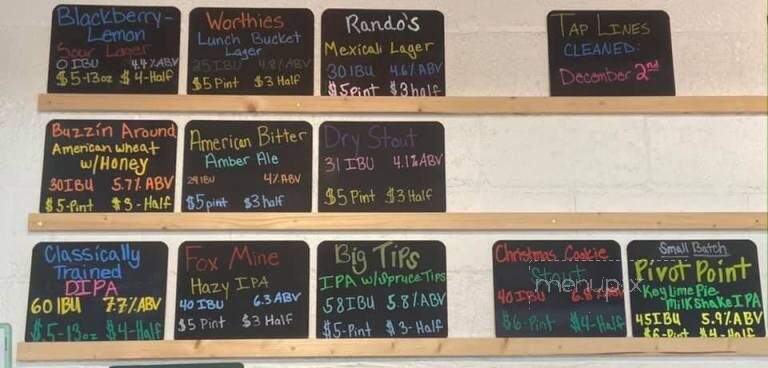 Blackberry-
Lemon
Sour Lager
0 IBU 4.4% ABV
$5-13oz $4-Half
Worthies
Lunch Bucket
Lager
25 IBU 4.8% ABV
$5 Pint $3 Half
Rando's
Mexicali Lager
30 IBU 4.6% ABV
$5 pint $3 half
Tap Lines
Cleaned:
December 2nd
Buzzin Around
American Wheat
w/Honey
30 IBU 5.7% ABV
$5-Pint $3-Half
American Bitter
Amber Ale
29 IBU 4% ABV
$5 pint $3 half
Dry Stout
31 IBU 4.1% ABV
$5 Pint $3 Half
Classically
Trained
DIPA
60 IBU 7.7% ABV
$5-13oz $4-Half
Fox Mine
Hazy IPA
40 IBU 6.3 ABV
$5 Pint $3 Half
Big Tips
IPA w/Spruce Tips
58 IBU 5.8% ABV
$5-Pint $3-Half
Christmas Cookie
Stout
menupix
40 IBU 6.8% ABV
$6-Pint $4-Half
Small Batch
Pivot Point
Key Lime Pie
Milkshake IPA
45 IBU 5.9% ABV
$6-Pint $4-Half